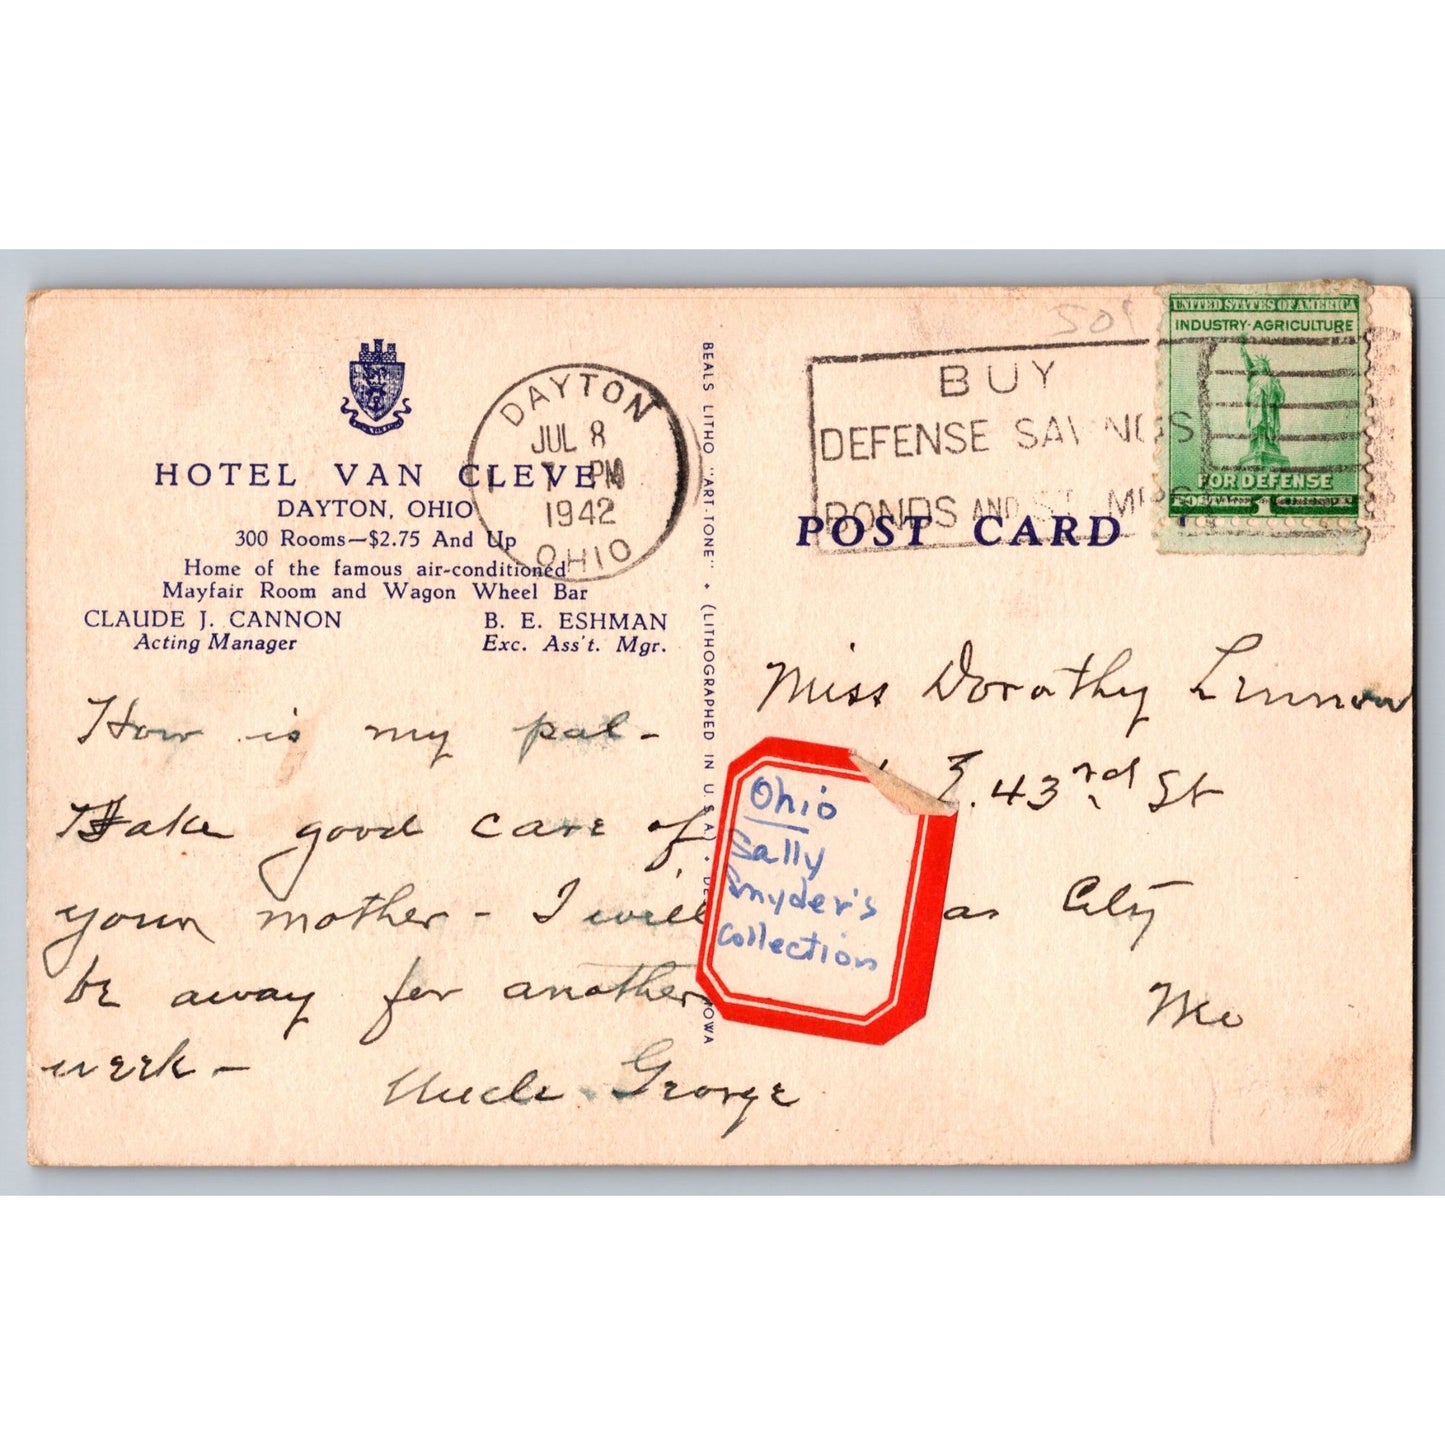 HOTEL VAN CLEVE
DAYTON, OHIO
300 Rooms—$2.75 And Up
Home of the famous air-conditioned
Mayfair Room and Wagon Wheel Bar
CLAUDE J. CANNON
Acting Manager
B. E. ESHMAN
Exc. Ass't. Mgr.
DAYTON
JUL 8
PM
1942
OHIO
How is my pal-
Take good care of
your mother - I will
be away for another
week -
Uncle George
BEALS LITHO "ART-TONE" • (LITHOGRAPHED IN U.S.A.) • DE
IOWA
501
BUY
DEFENSE SAVINGS
BONDS AND ST MPS
UNITED STATES OF AMERICA
INDUSTRY·AGRICULTURE
FOR DEFENSE
POST CARD
Miss Dorothy Lennow
E. 43rd St
as City
Mo
Ohio
Sally
Snyder's
Collection